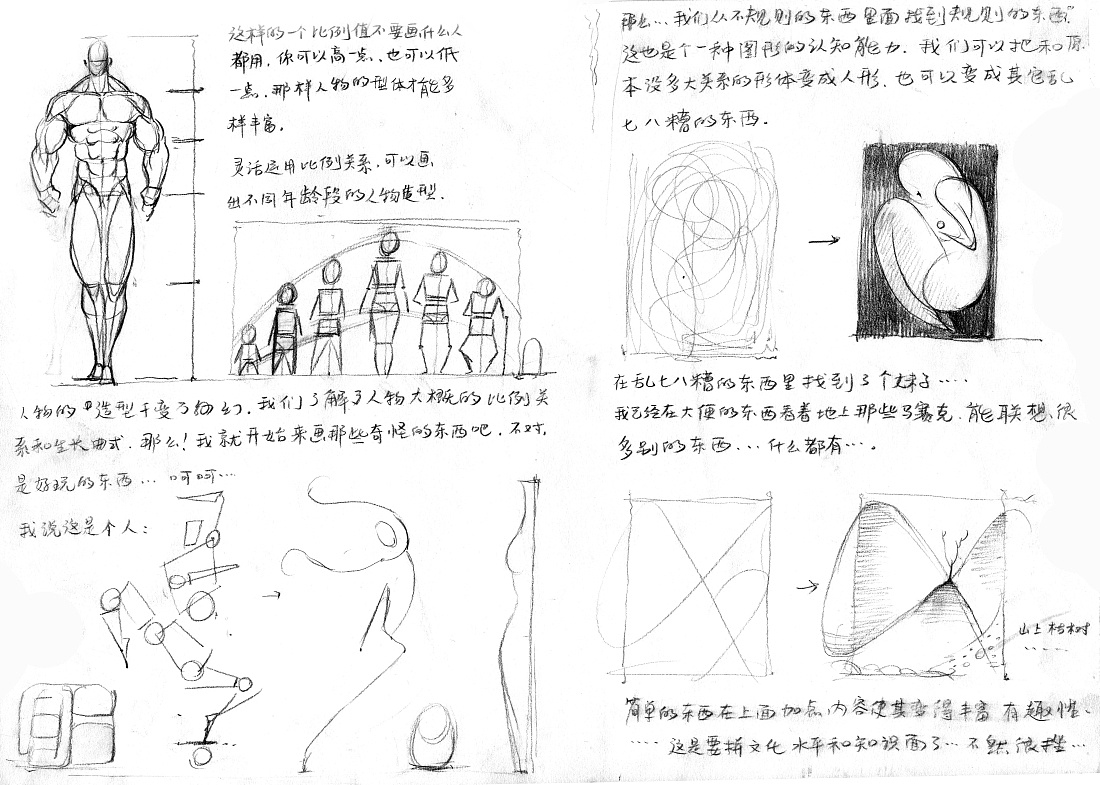 这样的一个比例值不要画什么人
都用，你可以高一点、也可以低
一点，那样人物的型体才能多
样丰富。
灵活运用比例关系，可以画
出不同年龄段的人物造型.
人物的造型千变万幻，我们了解了人物大概的比例关
系和生长曲式，那么！我就开始来画那些奇怪的东西吧，不对，
是好玩的东西… 呵呵…
我说这是个人：
那么…我们从不规则的东西里面找到规则的东西"
这也是个一种图形的认知能力，我们可以把和原
本没多大关系的形体变成人形，也可以变成其它乱
七八糟的东西.
在乱七八糟的东西里找到了个丈母子….
我已经在大便的东西看着地上那些马赛克，能联想很
多别的东西…什么都有…。
山上枯树
.....
简单的东西在上面加点内容使其变得丰富 有趣性、
….这是要拼文化水平和知识面了…不然很难…